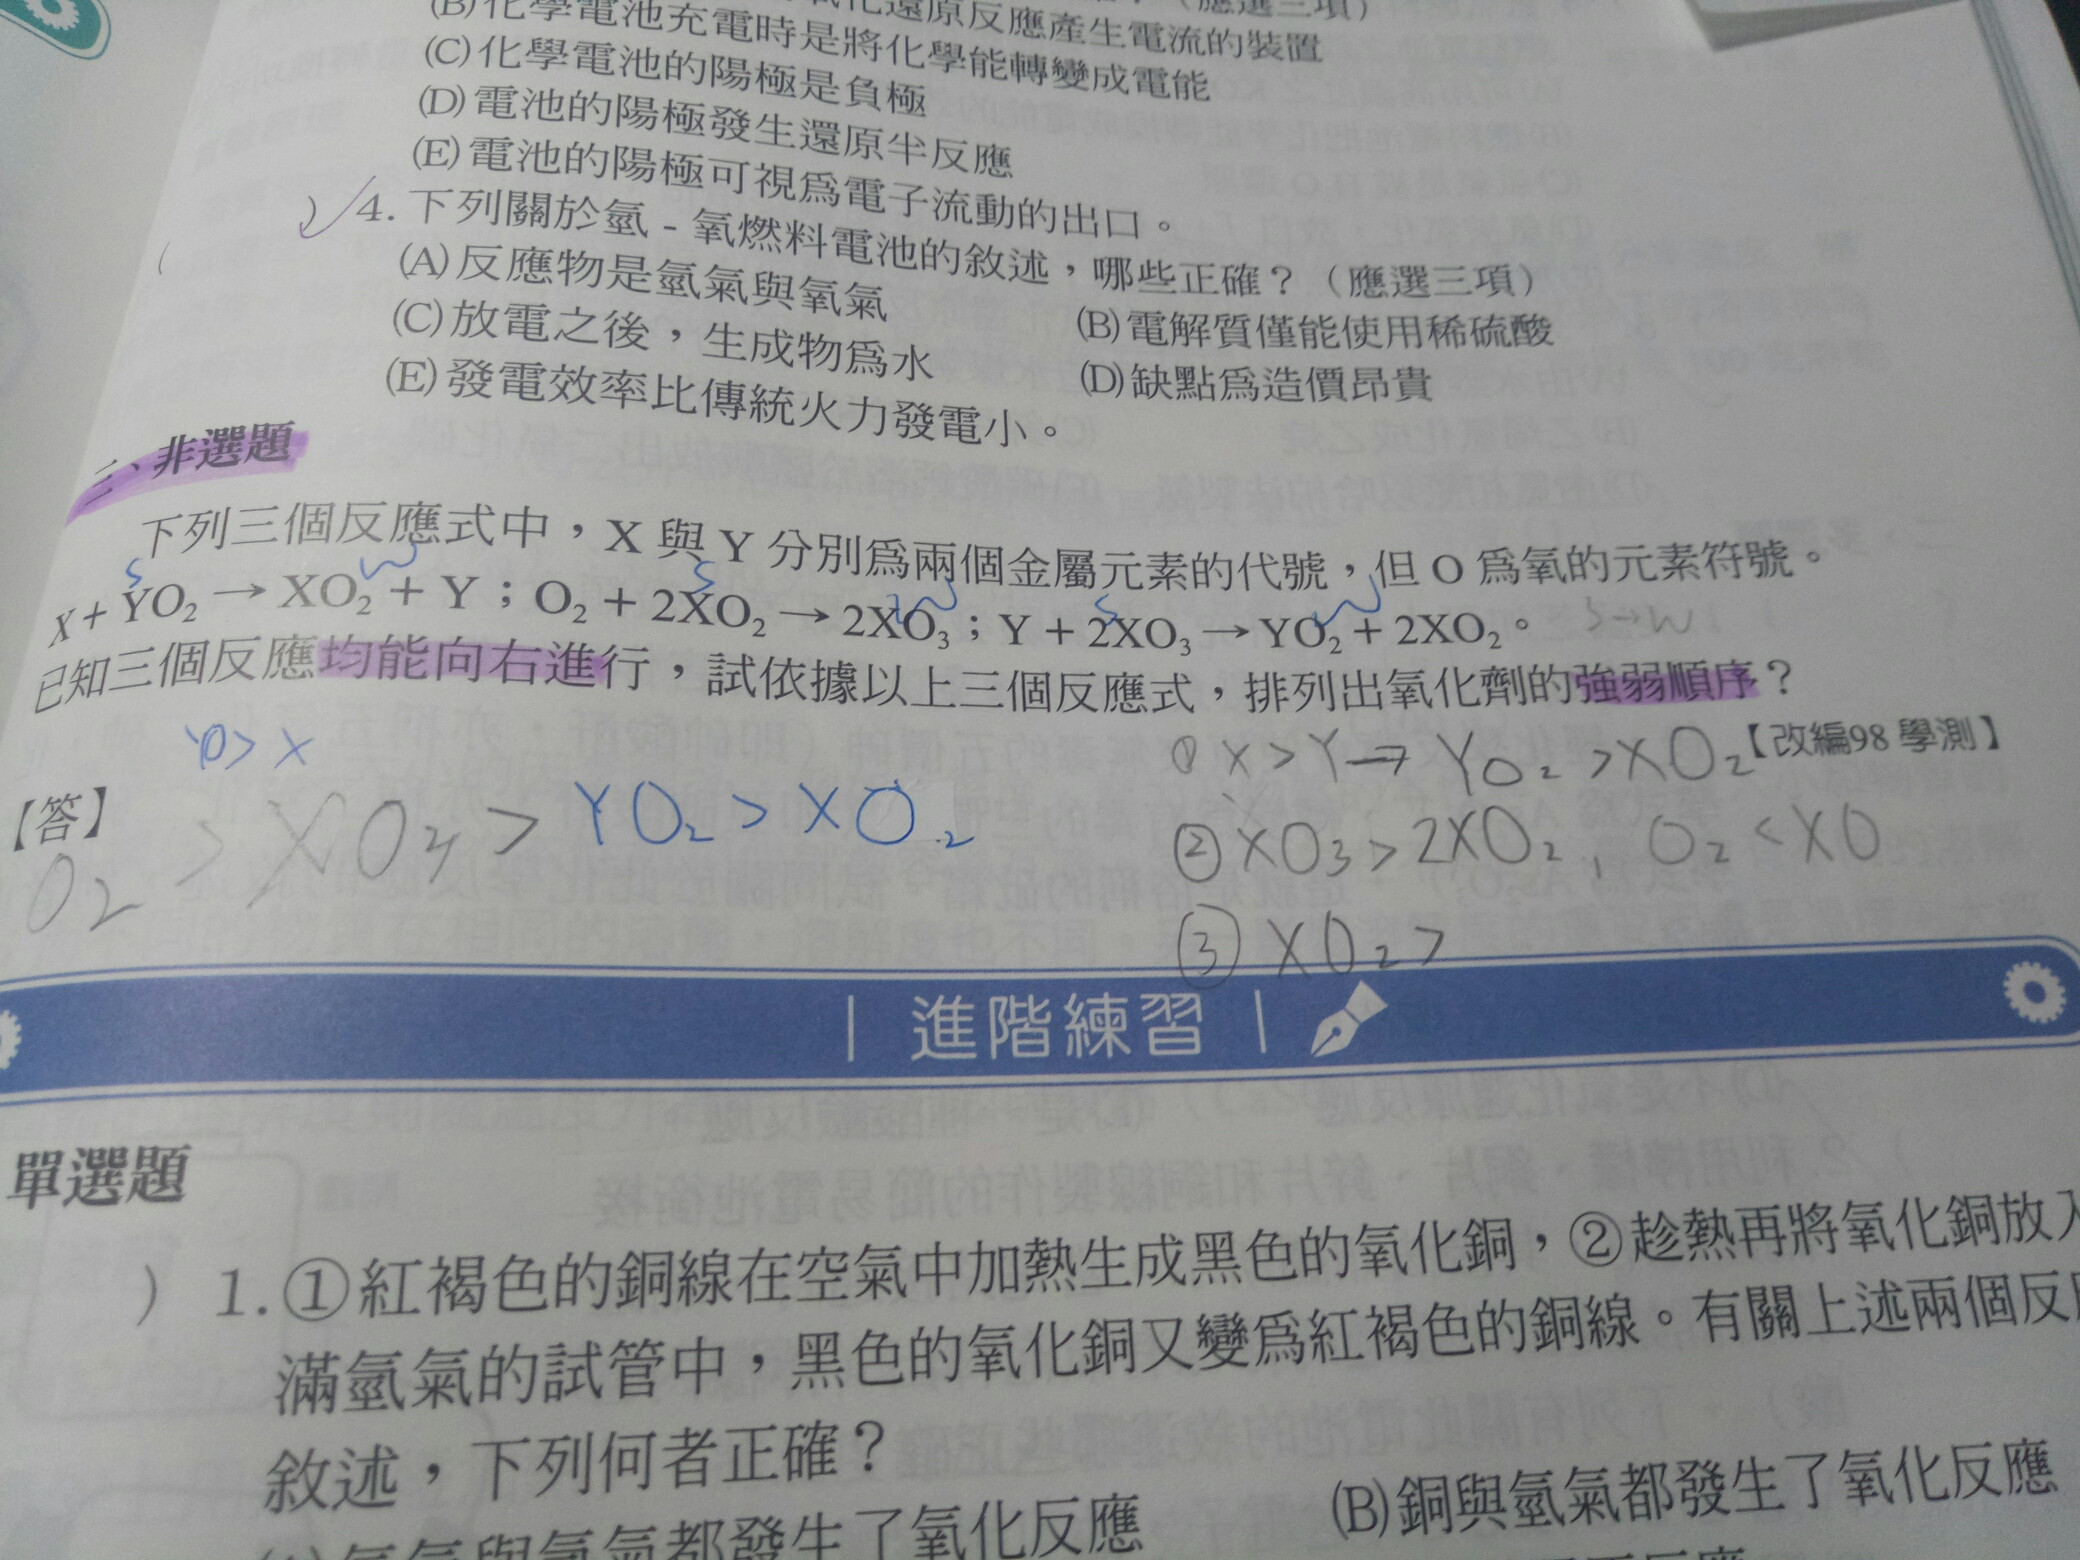 化還原反應產生電流的裝置
(B)化學電池充電時是將化學能轉變成電能
(C)化學電池的陽極是負極
(D)電池的陽極發生還原半反應
(E)電池的陽極可視為電子流動的出口。
)4. 下列關於氫-氧燃料電池的敘述，哪些正確？（應選三項）
(A)反應物是氫氣與氧氣
(B)電解質僅能使用稀硫酸
(C)放電之後，生成物為水
(D)缺點為造價昂貴
(E)發電效率比傳統火力發電小。
三、非選題
下列三個反應式中，X 與 Y 分別為兩個金屬元素的代號，但 O 為氧的元素符號。
X + YO₂ → XO₂ + Y；O₂ + 2XO₂ → 2XO₃；Y + 2XO₃ → YO₂ + 2XO₂。
S→W
已知三個反應均能向右進行，試依據以上三個反應式，排列出氧化劑的強弱順序？
【改編98 學測】
① X > Y → YO₂ > XO₂
【答】
O₂ > XO₃ > YO₂ > XO₂
② XO₃ > 2XO₂, O₂ < XO
③ XO₂ >
進階練習
單選題
) 1. ①紅褐色的銅線在空氣中加熱生成黑色的氧化銅，②趁熱再將氧化銅放入
滿氫氣的試管中，黑色的氧化銅又變為紅褐色的銅線。有關上述兩個反
敘述，下列何者正確？
都發生了氧化反應
(B)銅與氫氣都發生了氧化反應